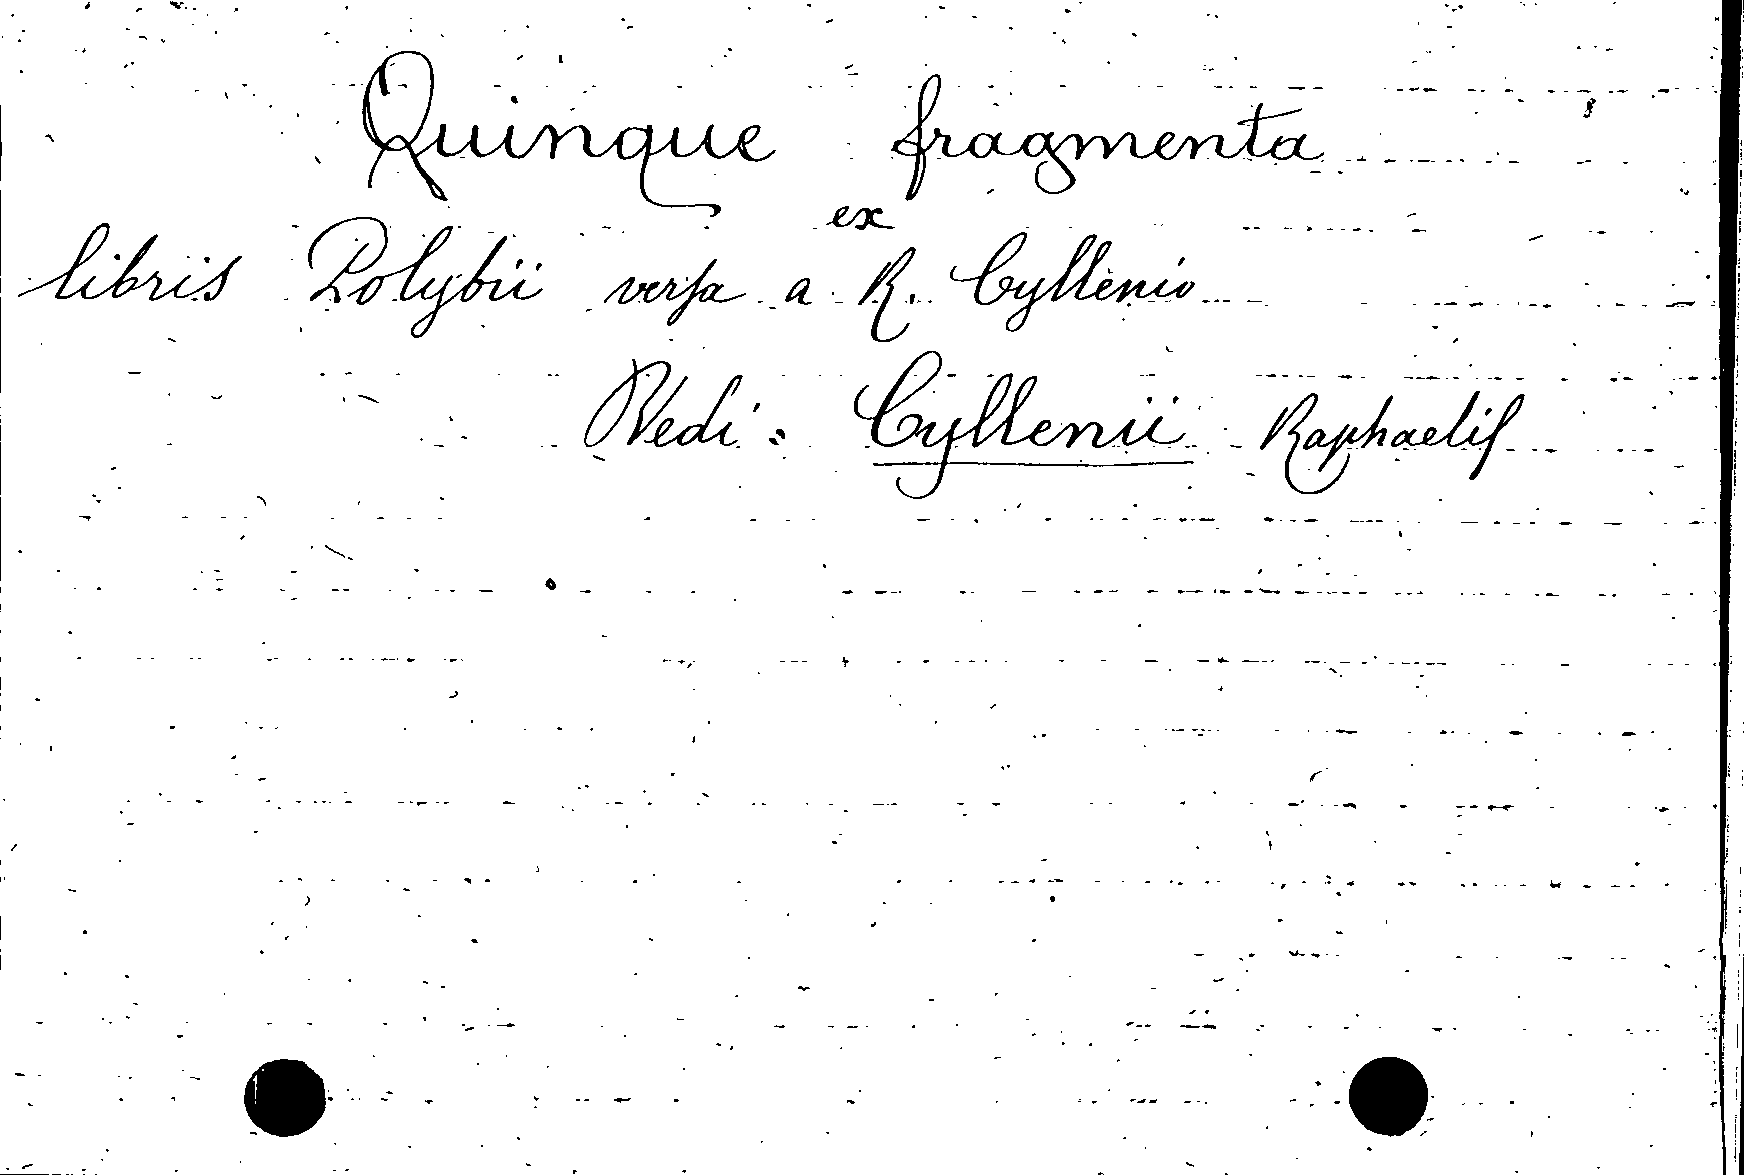 Quinque fragmenta
ex
libris Polybii versa a R. Cyllenio
Vedi: Cyllenii Raphaelis